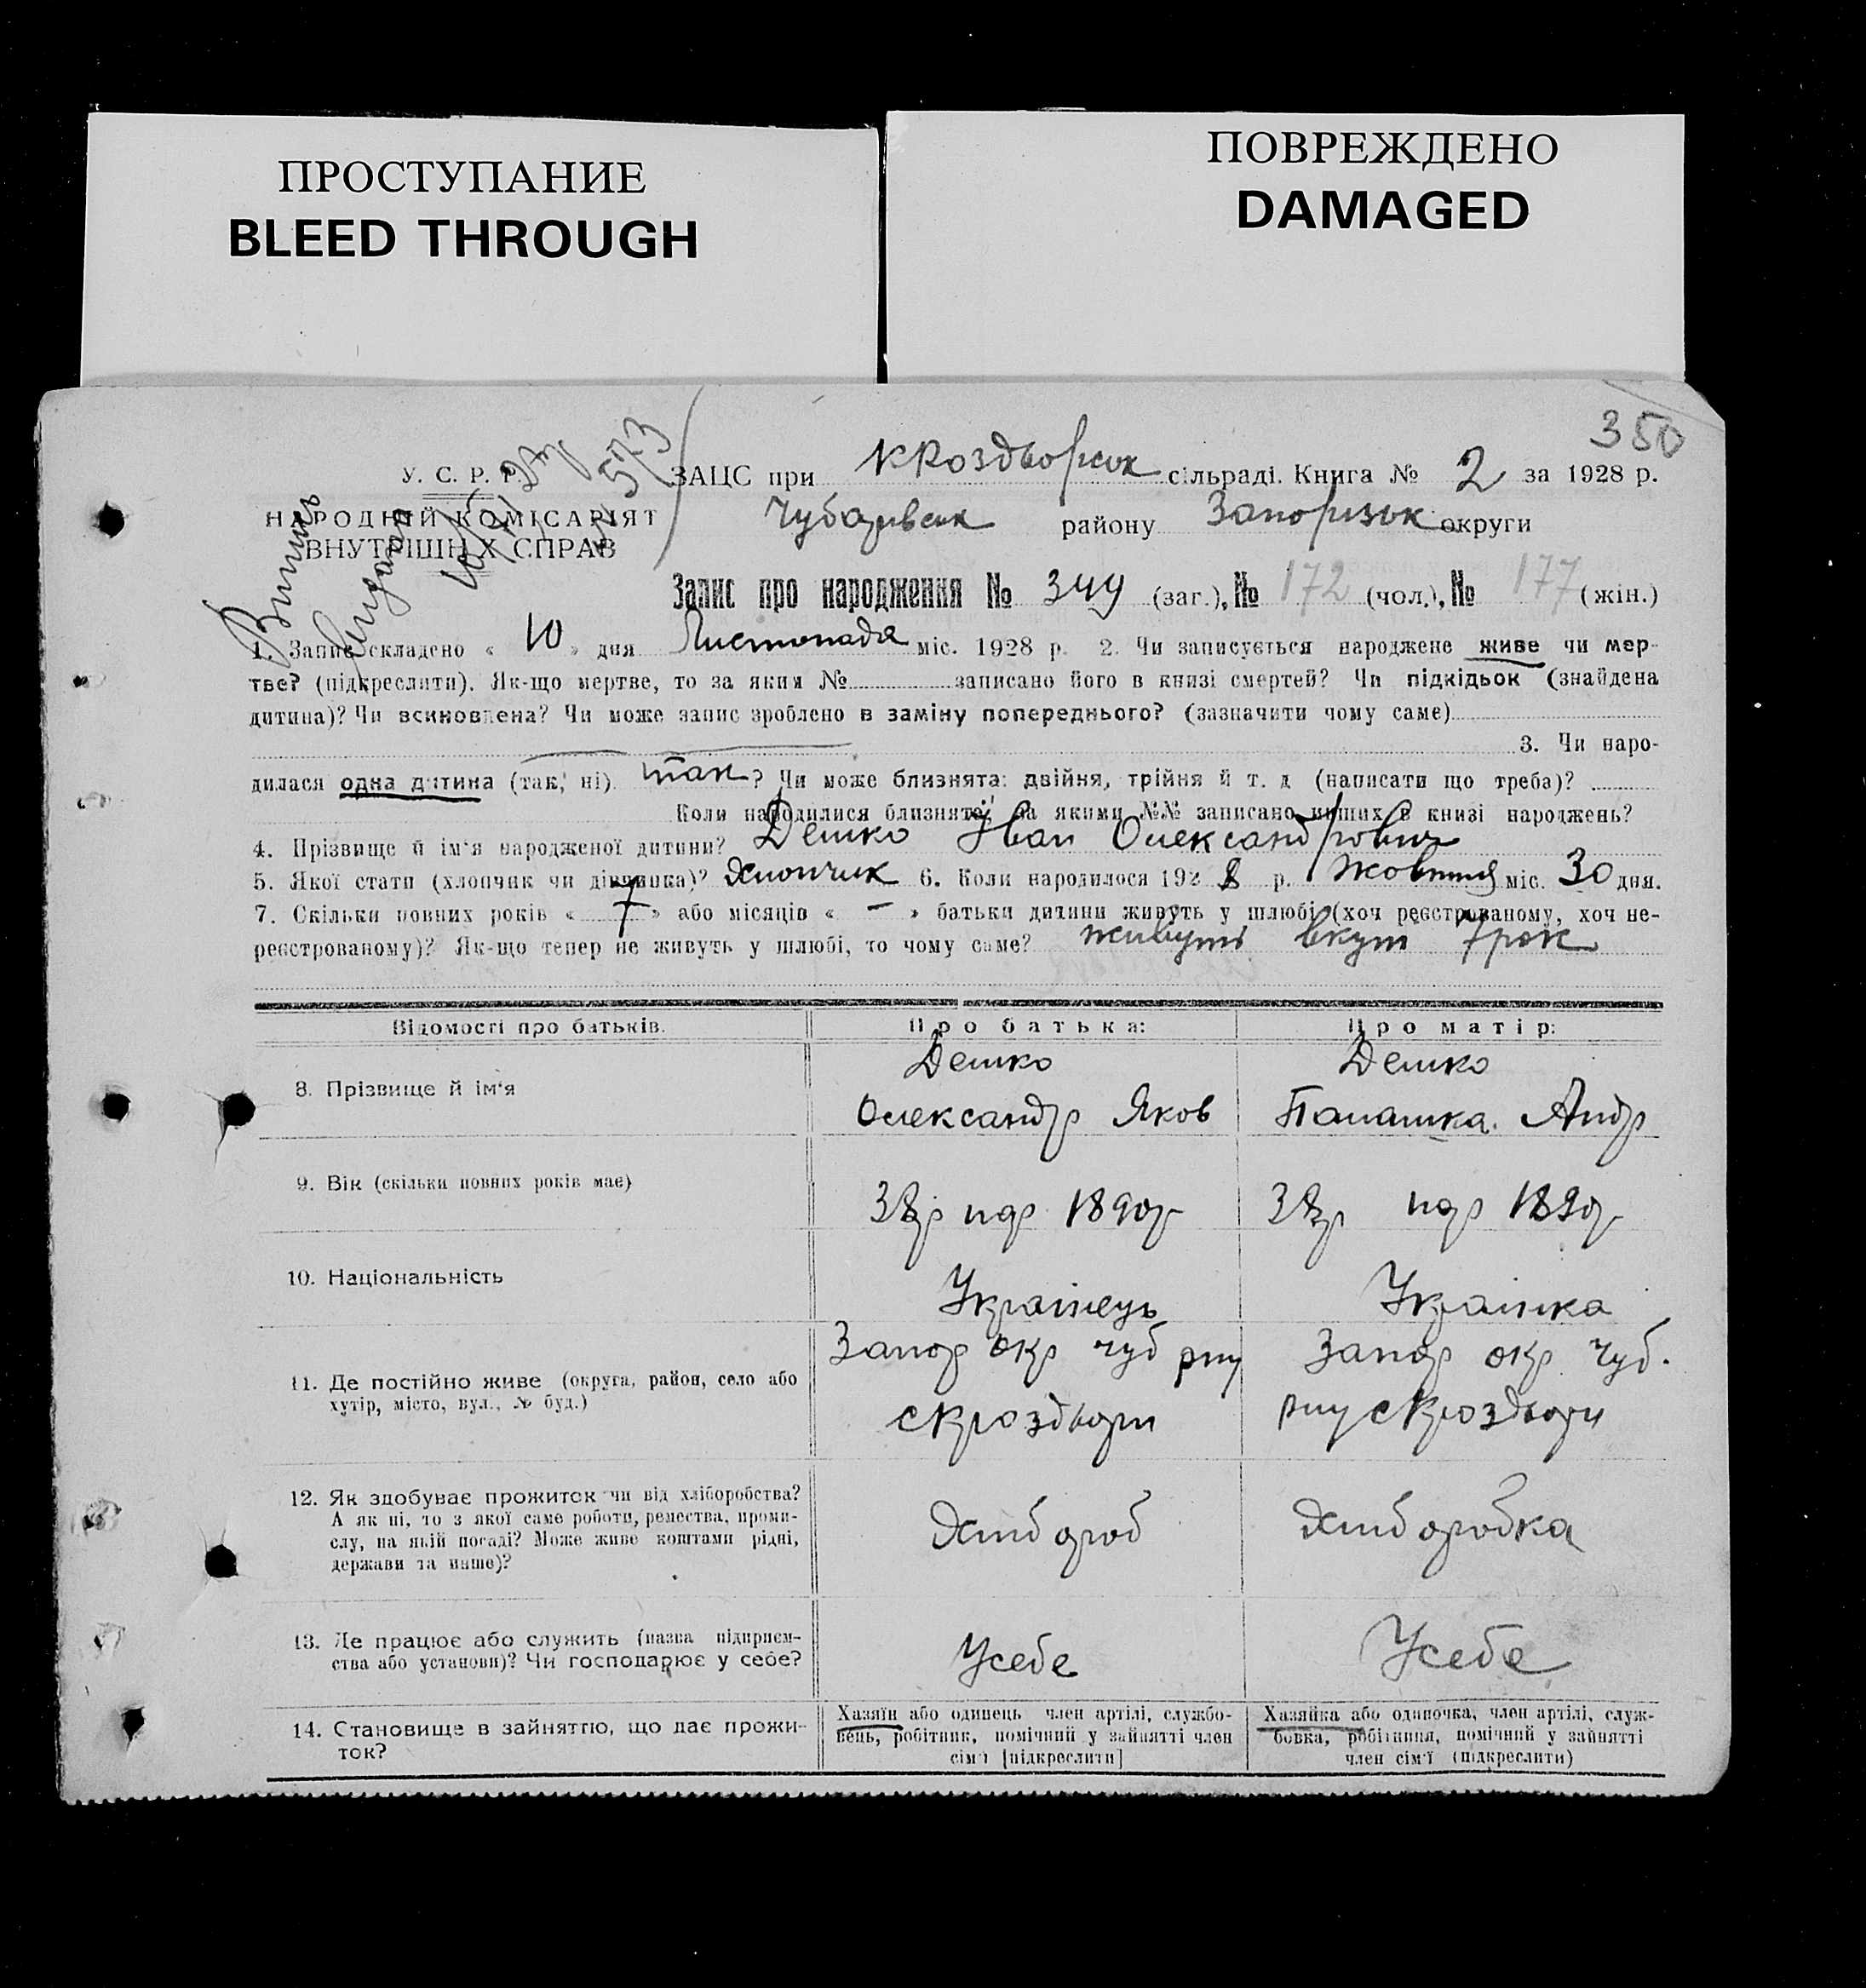 ПРОСТУПАНИЕ
BLEED THROUGH
ПОВРЕЖДЕНО
DAMAGED
350
У. С. Р. Р.
НАРОДНИЙ КОМІСАРІЯТ
ВНУТРІШНІХ СПРАВ
ЗАЦС при Кроздворськ сільраді. Книга № 2 за 1928 р.
Чубарівськ району Запоризьк округи
Запис про народження № 349 (заг.), № 172 (чол.), № 177 (жін.)
1. Запис складено « 10 » дня Листопада міс. 1928 р. 2. Чи записується народжене живе чи мер-
тве? (підкреслити). Як-що мертве, то за яким № записано його в книзі смертей? Чи підкідьок (знайдена
дитина)? Чи всиновлена? Чи може запис зроблено в заміну попереднього? (зазначити чому саме)
3. Чи наро-
дилася одна дитина (так, ні) так? Чи може близнята: двійня, трійня й т. д (написати що треба)?
Коли народилися близнята, за якими №№ записано инших в книзі народжень?
4. Прізвище й ім'я народженої дитини? Дешко Іван Олександрович
5. Якої стати (хлопчик чи дівчинка)? Хлопчик 6. Коли народилося 1928 р. Жовтня міс. 30 дня.
7. Скільки повних років « 7 » або місяців « — » батьки дитини живуть у шлюбі (хоч реєстрованому, хоч не-
реєстрованому)? Як-що тепер не живуть у шлюбі, то чому саме? живуть вкупі 7 рок
Відомості про батьків.
Про батька:
Про матір:
8. Прізвище й ім'я
Дешко
Олександр Яков
Дешко
Палашка Андр
9. Вік (скільки повних років має)
38р нар 1890р
38р нар 1890р
10. Національність
Українець
Українка
11. Де постійно живе (округа, район, село або
хутір, місто, вул., № буд.)
Запор окр чуб рну
с Кроздвори
Запор окр чуб.
рну с Кроздвори
12. Як здобуває прожиток чи від хліборобства?
А як ні, то з якої саме роботи, ремества, проми-
слу, на якій посаді? Може живе коштами рідні,
держави та инше)?
Хлібороб
Хліборобка
13. Де працює або служить (назва підприєм-
ства або установи)? Чи господарює у себе?
Усебе
Усебе
14. Становище в зайняттю, що дає прожи-
ток?
Хазяїн або одинець член артілі, службо-
вець, робітник, помічний у зайнятті член
сім'ї [підкреслити]
Хазяйка або одиночка, член артілі, служ-
бовка, робітниця, помічний у зайнятті
член сім'ї (підкреслити)